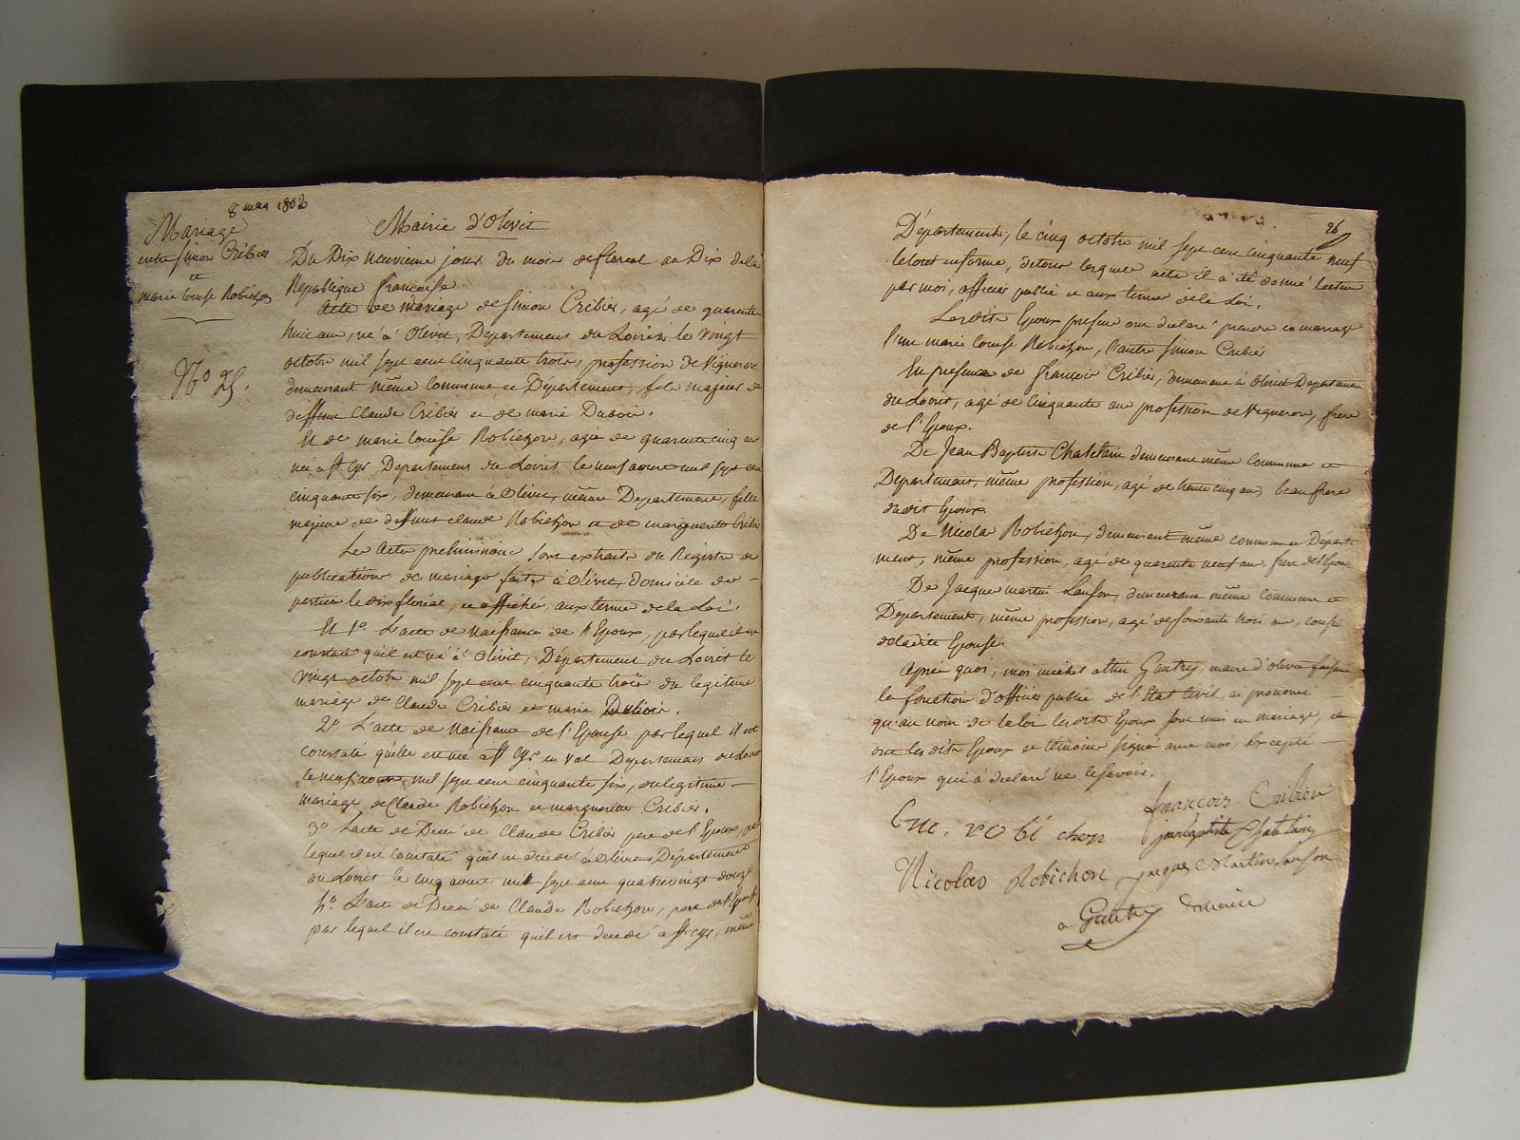 8 mai 1802
Mariage
entre Simon Cribier
et
marie louise Robichon
N.o 25.
Mairie d'Olivet
Du Dix neuvieme jour du mois de floreal an Dix de la
Republique francaise.
Acte de mariage de Simon Cribier, agé de quarante
huit ans, né a Olivet, Departement du Loiret le vingt
octobre mil sept cent cinquante trois, profession de Vigneron
demeurant même Commune et Departement, fils majeur de
deffunt Claude Cribier et de marie Dubois.
Et de marie louise Robichon, agée de quarante cinq ans
née a St Cyr Departement du Loiret le neuf mil sept cent
cinquante six, demeurant a Olivet, même Departement, fille
majeure de deffunt claude Robichon et de marguerite Cribier
Les actes preliminaires sont extraits du Registre de
publications de mariage faites a Olivet, domicile des
parties le dix floréal, et affichés aux termes de la Loi.
Et 1.o L'acte de Naissance de l'Epoux, par lequel il est
constaté qu'il est né a Olivet, Département du Loiret le
vingt octobre mil sept cent cinquante trois du legitime
mariage de Claude Cribier et marie Dubois.
2.o L'acte de Naissance de l'Epouse par lequel il est
constaté qu'elle est née a St Cyr en Val Departement du Loiret
le neuf mil sept cent cinquante six, du legitime
mariage de Claude Robichon et marguerite Cribier.
3.o L'acte de Decé de Claude Cribier pere de l'Epoux, par
lequel il est constaté qu'il est decedé a Olivet Département
du Loiret le cinq mil sept cent quatre vingt douze
4.o L'acte de Decé de Claude Robichon, pere de l'Epouse
par lequel il est constaté qu'il est decedé a St Cyr, même
26
Département, le cinq octobre mil sept cent cinquante neuf
le tout en forme, de tous lesquels actes il a été donné lecture
par moi, officier public et aux termes de la Loi.
Lesdits Epoux presens ont declaré prendre en mariage
l'une marie louise Robichon, l'autre Simon Cribier
En presence de françois Cribier, demeurant à Olivet Departement
du Loiret, agé de cinquante ans profession de Vigneron, frere
de l'Epoux.
De Jean Baptiste Chatelain demeurant même commune et
Departement, même profession, agé de trente cinq ans, beau frere
dudit Epoux
De Nicolas Robichon, demeurant même commune et Départe-
ment, même profession, agé de quarante neuf ans frere de l'Epouse
De Jacque martin Lanson, demeurant même commune et
Département, même profession, agé de soixante trois ans, cousin
de ladite Epouse.
Après quoi, moi michel Gautry, maire d'olivet faisant
les fonctions d'officier public de l'Etat Civil ai prononcé
qu'au nom de la loi lesdits Epoux sont unis en mariage, et
ont lesdits Epoux et témoins signé avec moi, Excepté
l'Epoux qui a declaré ne le savoir.
françois Cribier
robi chon
jean baptiste Chatelain
Nicolas Robichon
jaque Martin Lanson
Gautry